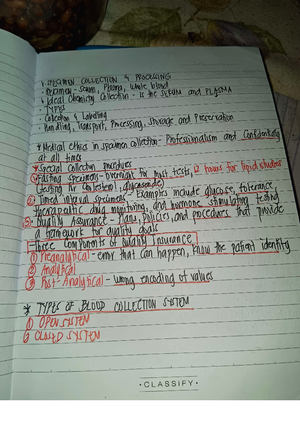 * SPECIMEN COLLECTION & PROCESSING
• Specimen - serum, Plasma, whole blood
* Ideal Chemistry Collection - is the SERUM and PLASMA
• TYPES
• Collection & Labelling
Handling, Transport, Processing, Storage and Preservation
* Medical ethics in specimen collection - Professionalism and Confidentiality
at all times
* Special collection procedures
① Fasting specimen - overnight for most tests, 12 hours for lipid studies
(testing for cholesterol,
② Timed interval specimens - Examples include glucose, tolerance,
therapeutic drug monitoring, and hormone stimulating testing
③ Quality Assurance - Plans, policies, and procedures that provide
a framework for quality goals
Three components of Quality Insurance
① Preanalytical - error that can happen, know the patient identity
② Analytical
③ Post-Analytical - wrong encoding of values
* TYPES OF BLOOD COLLECTION SYSTEM
① OPEN SYSTEM
② CLOSED SYSTEM
• CLASSIFY •